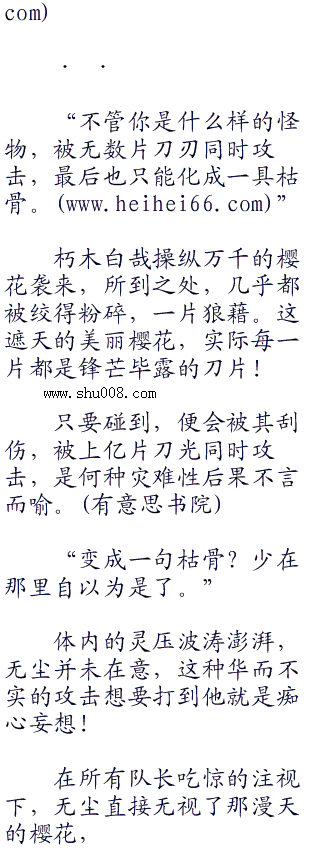 com)
. .
“不管你是什么样的怪
物，被无数片刀刃同时攻
击，最后也只能化成一具枯
骨。(www.heihei66.com)”
朽木白哉操纵万千的樱
花袭来，所到之处，几乎都
被绞得粉碎，一片狼藉。这
遮天的美丽樱花，实际每一
片都是锋芒毕露的刀片！
www.shu008.com
只要碰到，便会被其刮
伤，被上亿片刀光同时攻
击，是何种灾难性后果不言
而喻。(有意思书院)
“变成一句枯骨？少在
那里自以为是了。”
体内的灵压波涛澎湃，
无尘并未在意，这种华而不
实的攻击想要打到他就是痴
心妄想！
在所有队长吃惊的注视
下，无尘直接无视了那漫天
的樱花，